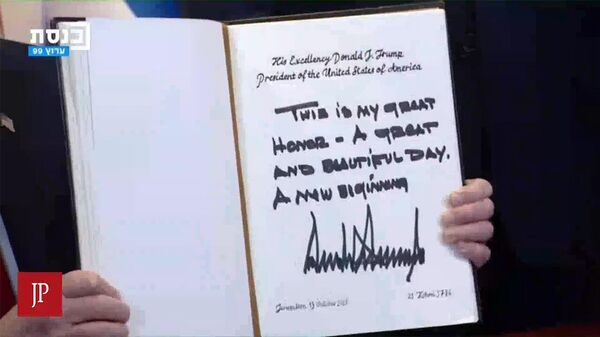 כנסת
ערוץ 99
His Excellency Donald J. Trump
President of the United States of America
THIS IS MY GREAT
HONOR - A GREAT
AND BEAUTIFUL DAY.
A NEW BEGINNING
Jerusalem, 13 October 2025
21 Tishrei 5786
JP